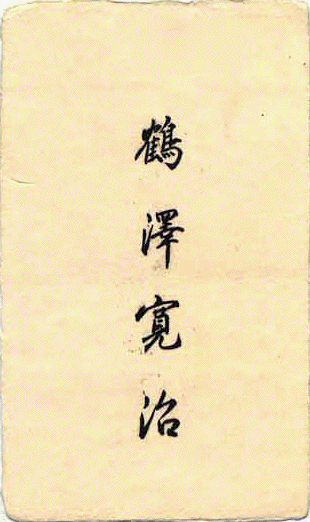 鶴澤寛治